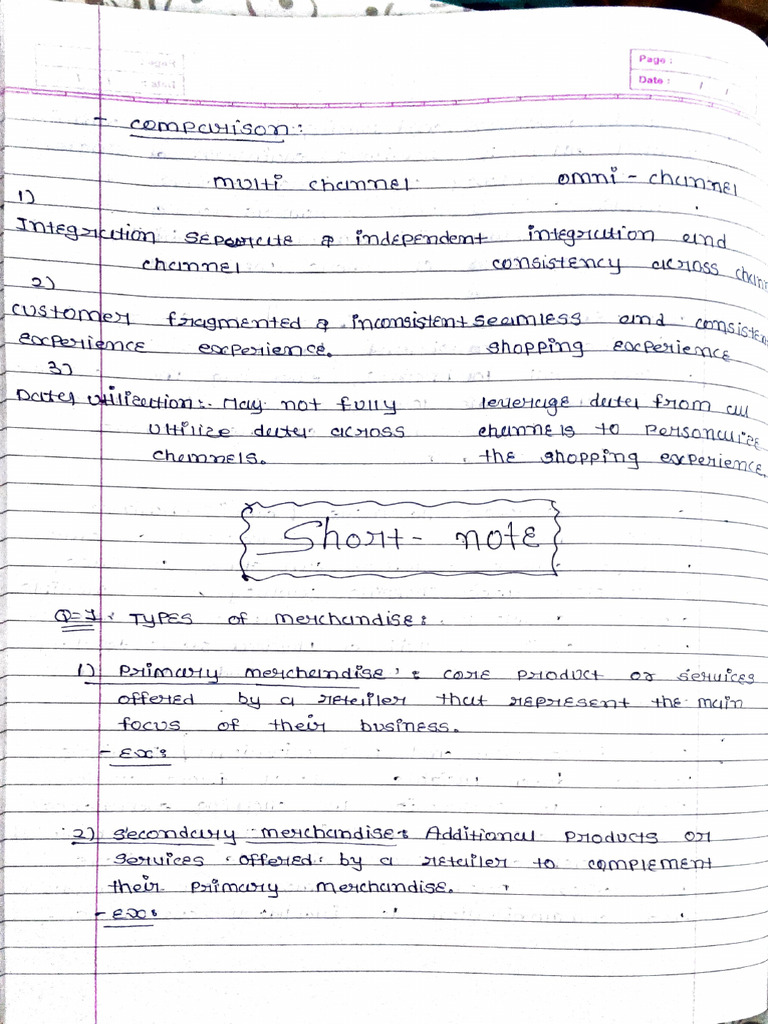 Page :
Date : / /
- Comparison:
multi channel omni - channel
1)
Integration separate & independent integration and
channel consistency across chann
2)
customer fragmented & inconsistent seamless and consisten
experience experience. shopping experience
3)
Data utilization:- May not fully leverage data from all
utilize data across channels to personalize
channels. the shopping experience.
Short- note
Q=1: Types of merchandise:
1) Primary merchandise: core product or services
offered by a retailer that represent the main
focus of their business.
- Ex:
2) secondary merchandise: Additional products or
services offered by a retailer to complement
their primary merchandise.
- Ex: